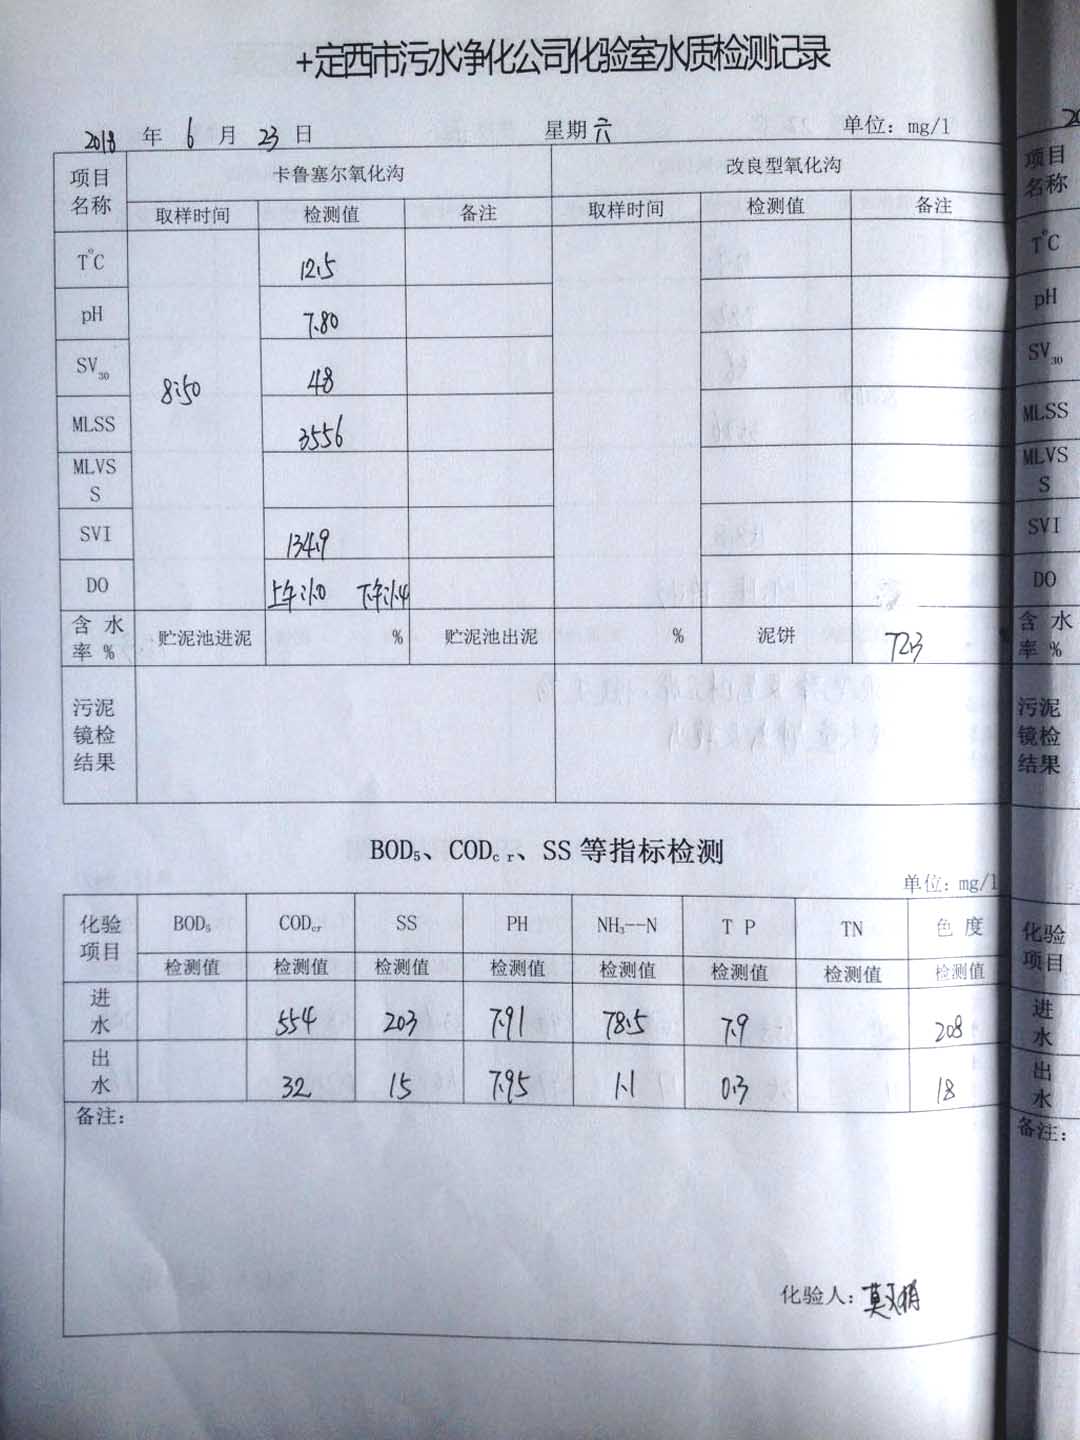 +定西市污水净化公司化验室水质检测记录
2018 年 6 月 23 日 星期六 单位: mg/l
项目名称 卡鲁塞尔氧化沟 改良型氧化沟
取样时间 检测值 备注 取样时间 检测值 备注
T℃ 12.5
pH 7.80
SV30 8:50 48
MLSS 3556
MLVSS
SVI 134.9
DO 上午:1.0 下午:1.4
含水率% 贮泥池进泥 % 贮泥池出泥 % 泥饼 72.3
污泥镜检结果
BOD5、CODcr、SS 等指标检测
单位: mg/l
化验项目 BOD5 CODcr SS PH NH3--N T P TN 色 度
检测值 检测值 检测值 检测值 检测值 检测值 检测值 检测值
进水 554 203 7.91 78.5 7.9 208
出水 32 15 7.95 1.1 0.3 18
备注:
化验人:
20
项目名称
T℃
pH
SV30
MLSS
MLVSS
SVI
DO
含水率%
污泥镜检结果
化验项目
进水
出水
备注: